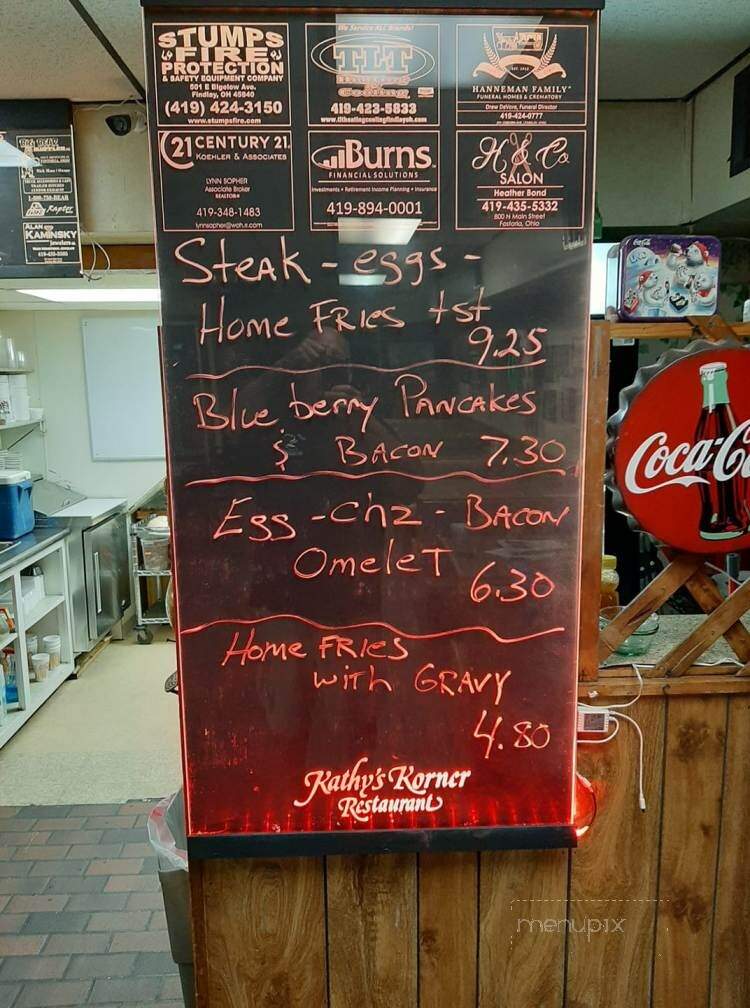 STUMPS
FIRE
PROTECTION
& SAFETY EQUIPMENT COMPANY
501 E Bigelow Ave.
Findlay, OH 45840
(419) 424-3150
www.stumpsfire.com
We Service ALL Brands!
TLT
Heating
Cooling
419-423-5833
www.tltheatingcoolingfindlayoh.com
HANNEMAN FAMILY
FUNERAL HOMES & CREMATORY
Drew DeVore, Funeral Director
419-424-0777
21 CENTURY 21.
KOEHLER & ASSOCIATES
LYNN SOPHER
Associate Broker
REALTOR®
419-348-1483
lynnsopher@woh.rr.com
Burns
FINANCIAL SOLUTIONS
Investments • Retirement Income Planning • Insurance
419-894-0001
H & Co
SALON
Heather Bond
419-435-5332
800 N Main Street
Fostoria, Ohio
Steak - eggs -
Home Fries tst
9.25
Blueberry Pancakes
& Bacon 7.30
Egg - chz - Bacon
Omelet
6.30
Home Fries
with Gravy
4.80
Kathy's Korner
Restaurant
ALAN
KAMINSKY
jewelers
Raptor
Coca-Cola
Coca-C
menupix